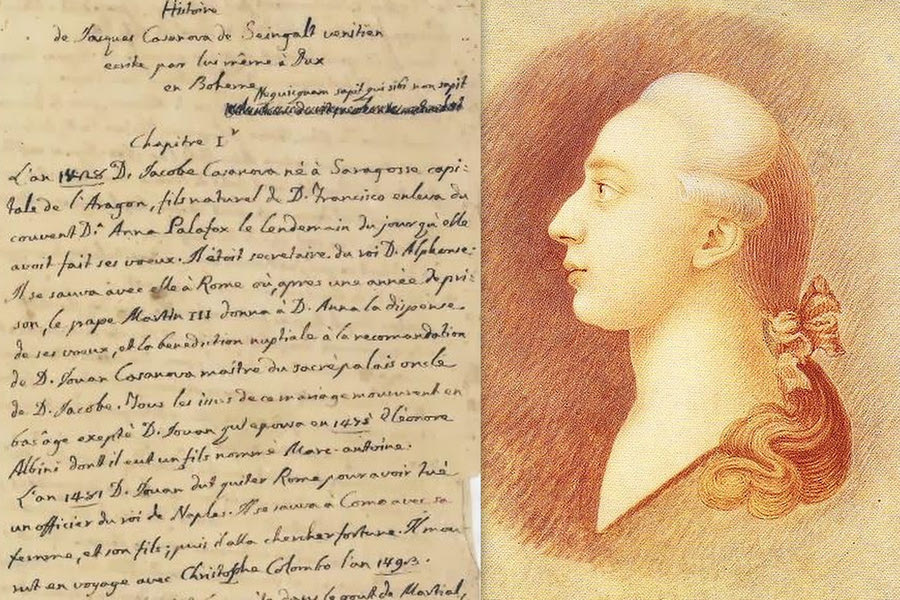 Histoire
de Jacques Casanova de Seingalt venitien
ecrite par lui même à Dux
en Boheme
Nequicquam sapit qui sibi non sapit
Chapitre I.r
L'an 1428 D. Jacobe Casanova né à Saragosse capi-
tale de l'Aragon, fils naturel de D. Francisco enleva du
couvent D.a Anna Palafox le lendemain du jour qu'elle
avoit fait ses voeux. Il étoit secretaire du roi D. Alphonse.
Il se sauva avec elle à Rome où, après une année de pri-
son, le pape Martin III donna à D. Anna la dispense
de ses voeux, et la benediction nuptiale à la recomandation
de D. Jouan Casanova maître du sacré palais oncle
de D. Jacobe. Tous les issus de ce mariage moururent en
bas âge exepté D. Jouan qui epousa en 1475 Eléonore
Albini dont il eut un fils nommé Marc-antoine.
L'an 1481 D. Jouan dut quiter Rome pour avoir tué
un officier du roi de Naples. Il se sauva à Como avec sa
femme, et son fils; puis il alla chercher fortune. Il mou-
rut en voyage avec Christophe Colombo l'an 1493.
dans le gout de Martial,